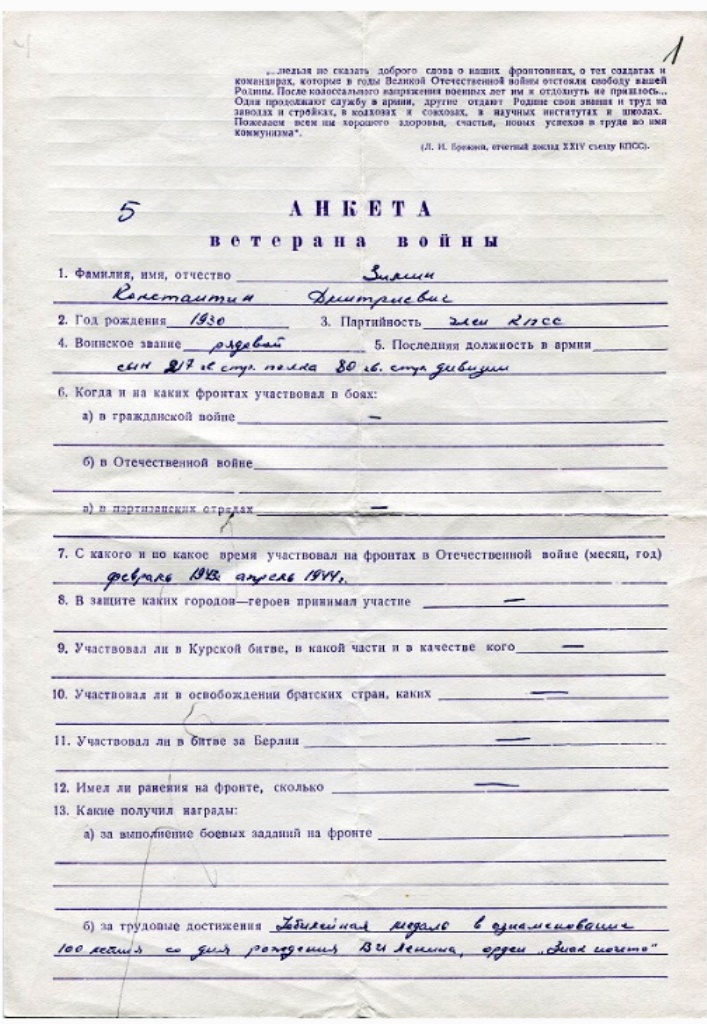 1
„...нельзя не сказать доброго слова о наших фронтовиках, о тех солдатах и
командирах, которые в годы Великой Отечественной войны отстояли свободу нашей
Родины. После колоссального напряжения военных лет им и отдохнуть не пришлось...
Одни продолжают службу в армии, другие отдают Родине свои знания и труд на
заводах и стройках, в колхозах и совхозах, в научных институтах и школах.
Пожелаем всем им хорошего здоровья, счастья, новых успехов в труде во имя
коммунизма“.
(Л. И. Брежнев, отчетный доклад XXIV съезду КПСС).
5
АНКЕТА
ветерана войны
1. Фамилия, имя, отчество Зимин
Константин Дмитриевич
2. Год рождения 1930 3. Партийность член КПСС
4. Воинское звание рядовой 5. Последняя должность в армии
сын 217 гв. стр. полка 80 гв. стр. дивизии
6. Когда и на каких фронтах участвовал в боях:
а) в гражданской войне —
б) в Отечественной войне
в) в партизанских отрядах —
7. С какого и по какое время участвовал на фронтах в Отечественной войне (месяц, год)
февраль 1943 апрель 1944г.
8. В защите каких городов—героев принимал участие —
9. Участвовал ли в Курской битве, в какой части и в качестве кого —
10. Участвовал ли в освобождении братских стран, каких —
11. Участвовал ли в битве за Берлин —
12. Имел ли ранения на фронте, сколько —
13. Какие получил награды:
а) за выполнение боевых заданий на фронте
б) за трудовые достижения Юбилейная медаль в ознаменование
100 летия со дня рождения ВИ Ленина, орден „Знак почета“